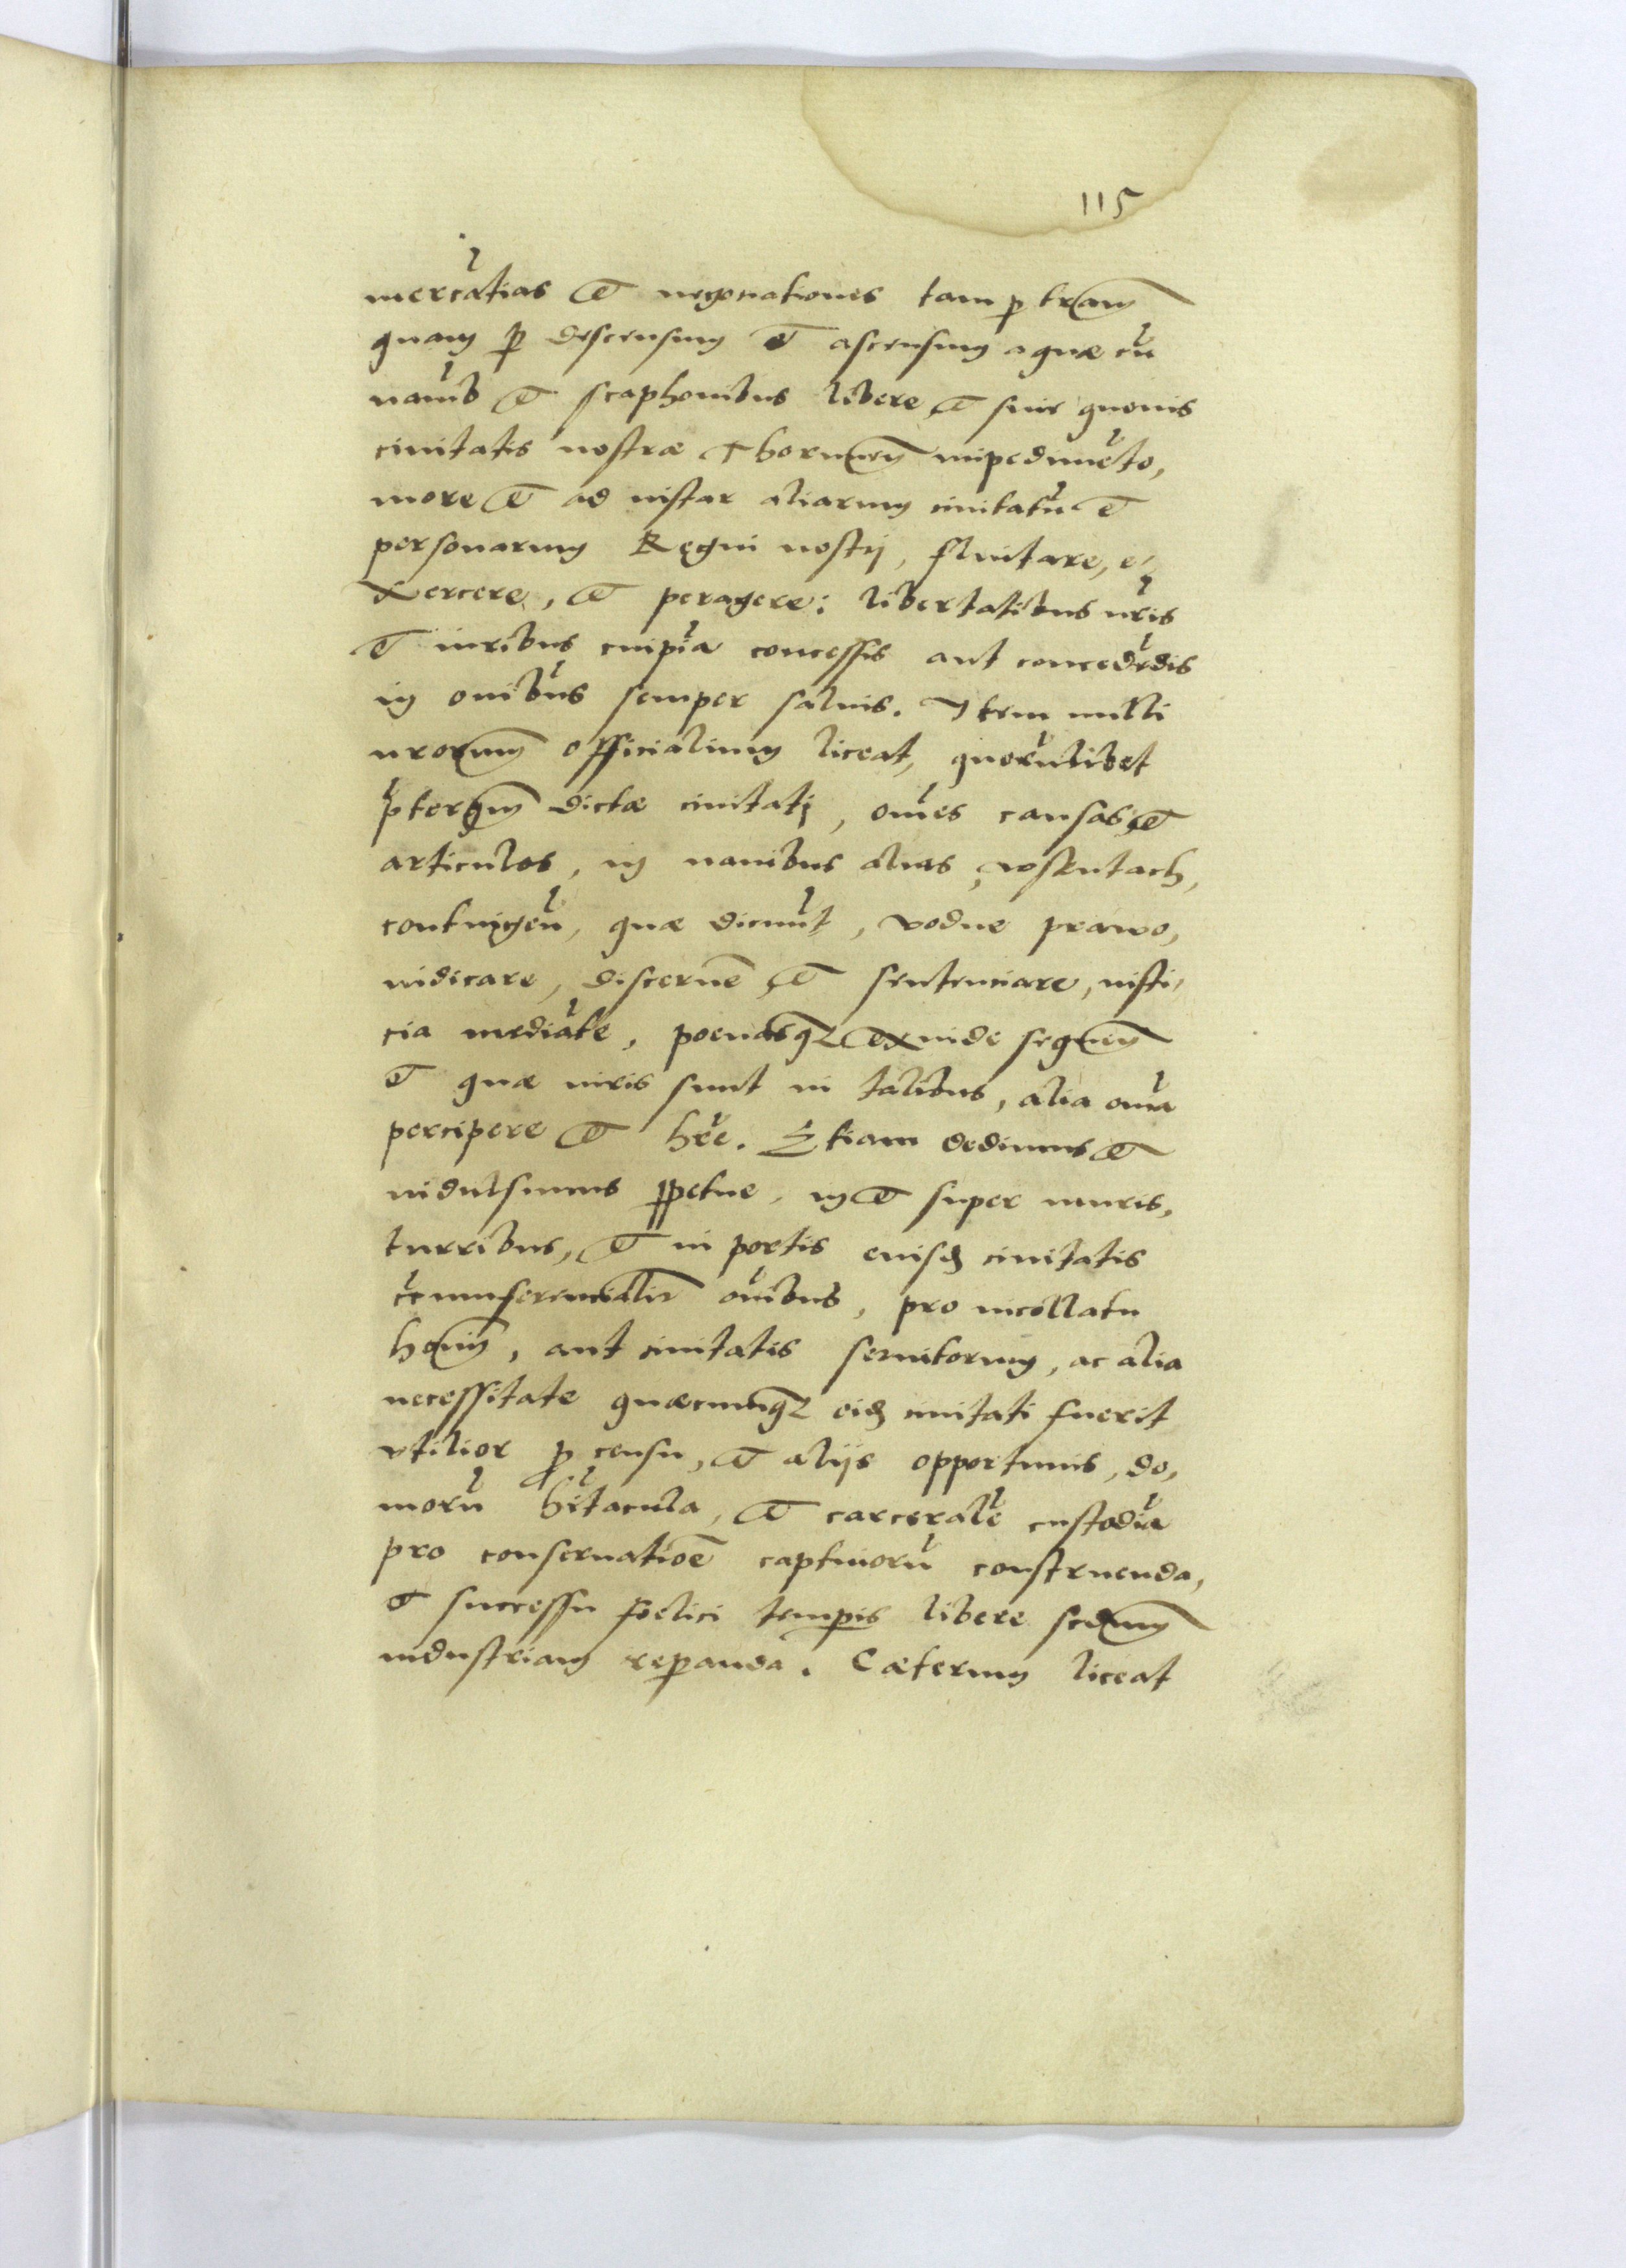 115
mercātias et negotiationes tam p̱ trām
quam p̱ descensum et ascensum aquæ cū
nauib et scaphonibus libere et sine quouis
ciuitatis nostræ Thorunen̄ impedimēto,
more et ad instar aliarum ciuitatū et
personarum Regni nostrj, fluitare, e-
xercere, et peragere: libertatibus nr̄is
et iuribus cuipiā concessis aut concedēdis
in ōnibus semper saluis. Item nulli
nrorum officialium liceat, quorūlibet
p̄terqm̄ dictæ ciuitatj, om̄es causas et
articulos, in nauibus alias, wskutach,
contingeñ, quæ dicūnt, vodne prawo,
iudicare, discerne et sentenciare, iusti-
cia mediāte, poenasq₃ exinde sequen̄
et quæ iuris sunt in talibus, alia om̄ia
percipere et hr̄e. Etiam dedimus et
indulsimus p̱petue, in et super muris,
turribus, et in portis eiusd̄ ciuitatis
cīrcumferencialir ōnibus, pro incollatu
hom̄, aut ciuitatis seruitorum, ac alia
necessitate quæcumq₃ eid̄ ciuitati fuerit
vtilior p̱ censu, et alijs opportunis, do-
morū hītacula, et carcerālē custodiā
pro conseruatiōe captiuorū construenda,
et successu foelici temp̱is libere scdm̄
industriam rep̱anda. Cæterum liceat